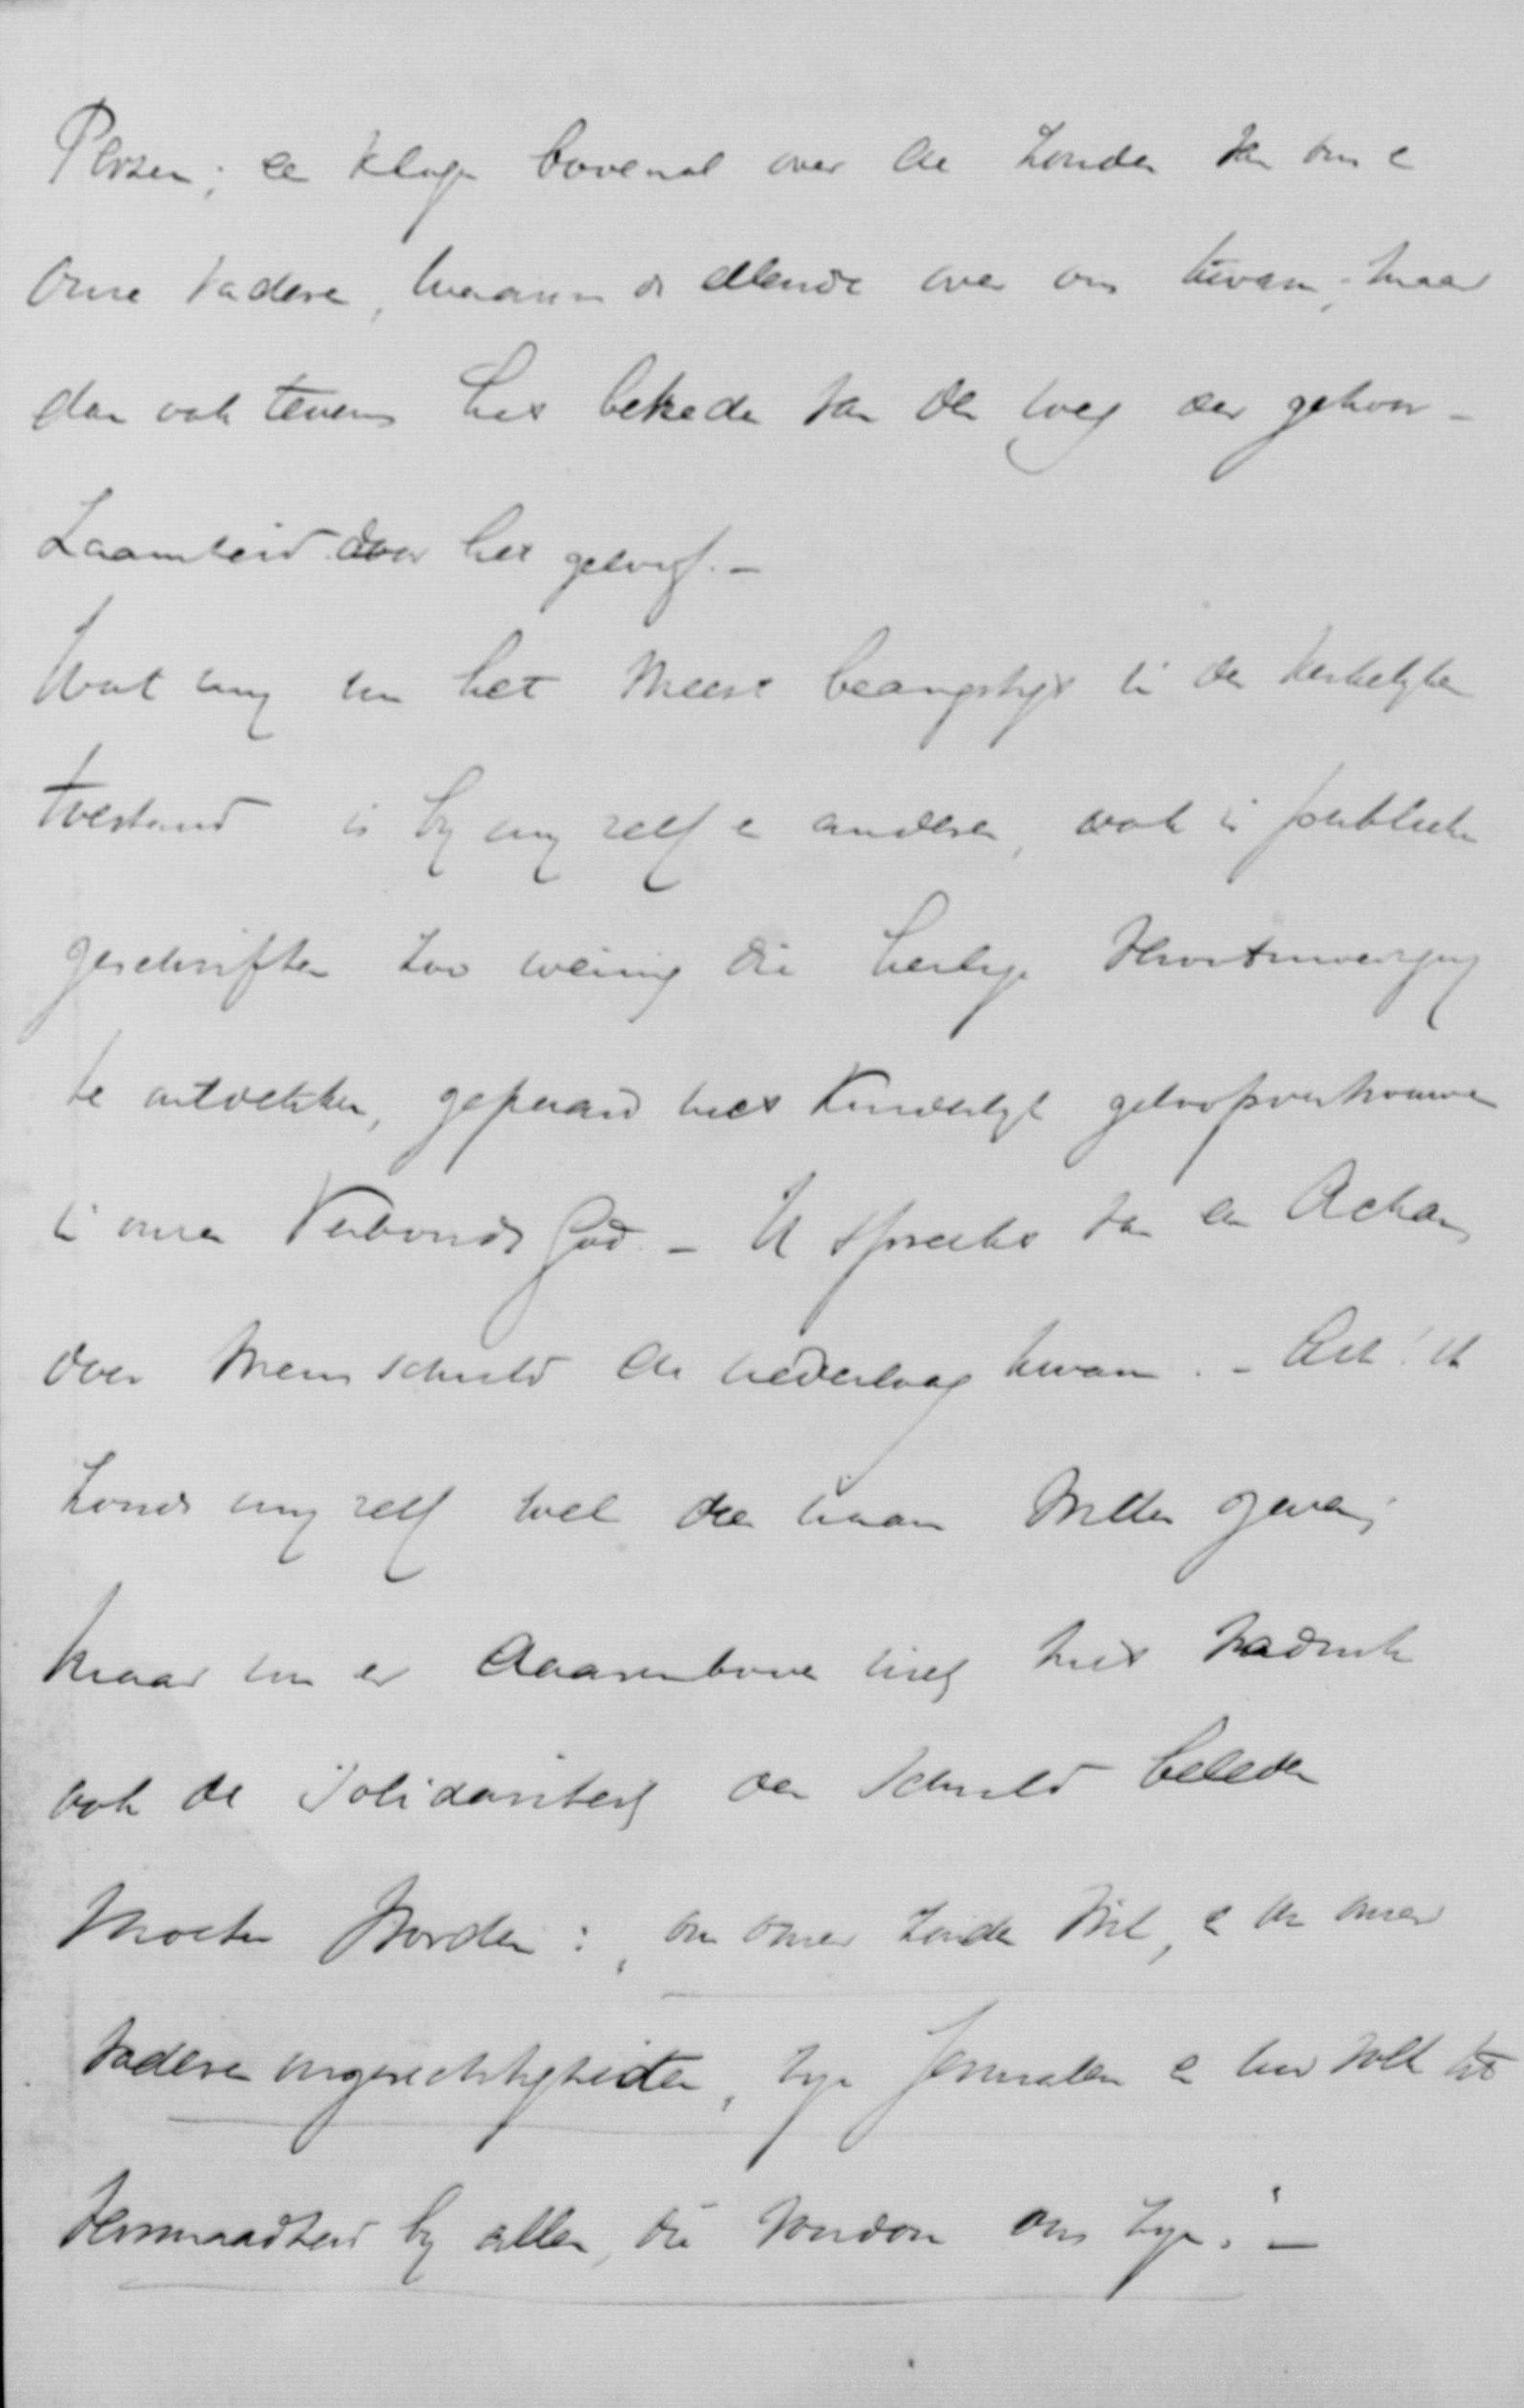 Perzen; en klage bovenal over de zonden van ons en
onze vaderen, waarom de ellende over ons kwam; maar
dan ook tevens het betreden van den weg der gehoor-
zaamheid door het geloof. -
Wat my nu het meest beangstigt in den kerkelyken
toestand is by my zelf en anderen, ook in publieke
geschriften zoo weinig die heilige
te ontdekken, gepaard met kinderlyk geloofsvertrouwen
in onzen Verbonds God. - U spreekt van een Achan,
door wiens schuld de nederlaag kwam. - Ach! ik
zoude my zelf wel dien naam willen geven;
maar nu er daarenboven nog met nadruk
ook de Solidariteit der schuld beleden
moeten worden: „om onzer zonden wil, en om onzer
vaderen ongerechtigheden, zyn Jeruzalem en uw volk tot
versmaadheid by allen, die rondom ons zyn." -